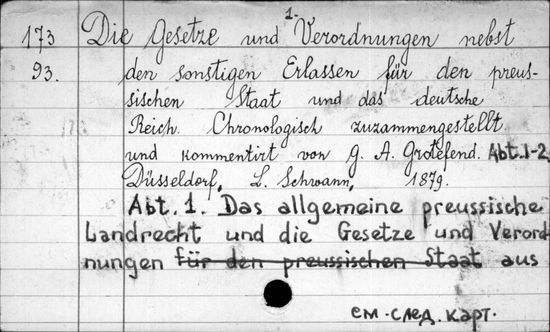 1.
173 Die Gesetze und Verordnungen nebst
93. den sonstigen Erlassen für den preus-
sischen Staat und das deutsche
Reich. Chronologisch zuzammengestellt
und kommentirt von G. A. Grotefend. Abt. 1-2
Düsseldorf, L. Schwann, 1879.
Abt. 1. Das allgemeine preussische
Landrecht und die Gesetze und Verord-
nungen für den preussischen Staat aus
см. след. карт.